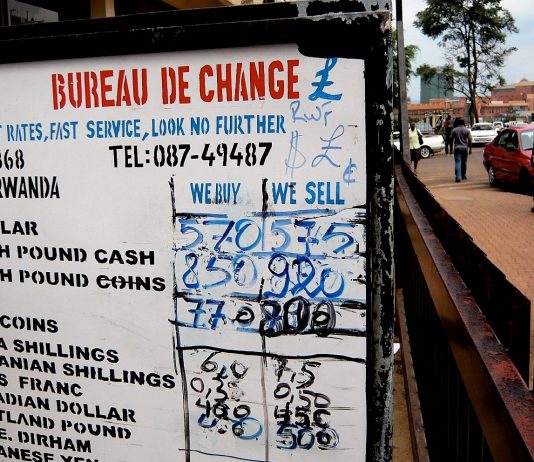 BUREAU DE CHANGE £
RATES, FAST SERVICE, LOOK NO FURTHER
RWF
$ £ ¢
868 TEL:087-49487
RWANDA
WE BUY WE SELL
LAR 570 575
H POUND CASH 850 920
H POUND COINS
770 800
COINS
A SHILLINGS
ANIAN SHILLINGS
S FRANC
ADIAN DOLLAR
TLAND POUND
E. DIRHAM
ANESE YEN